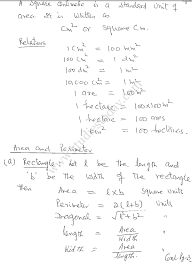 A square centimetre is a standard unit of
area. It is written as
Cm² or Square Cm.
Relations
1 Cm² = 100 mm²
100 Cm² = 1 dm²
100 dm² = 1 m²
10,000 Cm² = 1 m²
1 are = 100 m²
1 hectare = 100x100 m²
1 hectare = 100 ares
1 km² = 100 hectares.
Area and Perimeter
(a) Rectangle:- let l be the length and
'b' be the width of the rectangle
then Area = l x b Square units
Perimeter = 2(l+b) Units
Diagonal = √l²+b² "
length = Area/Width "
Width = Area/length. "